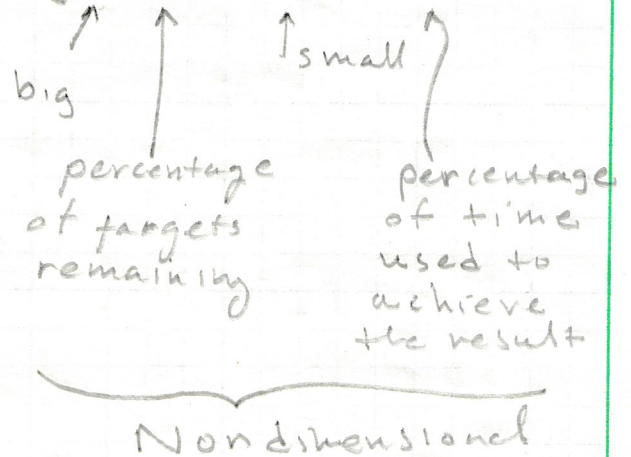 big
small
percentage
of targets
remaining
percentage
of time
used to
achieve
the result
Nondimensional